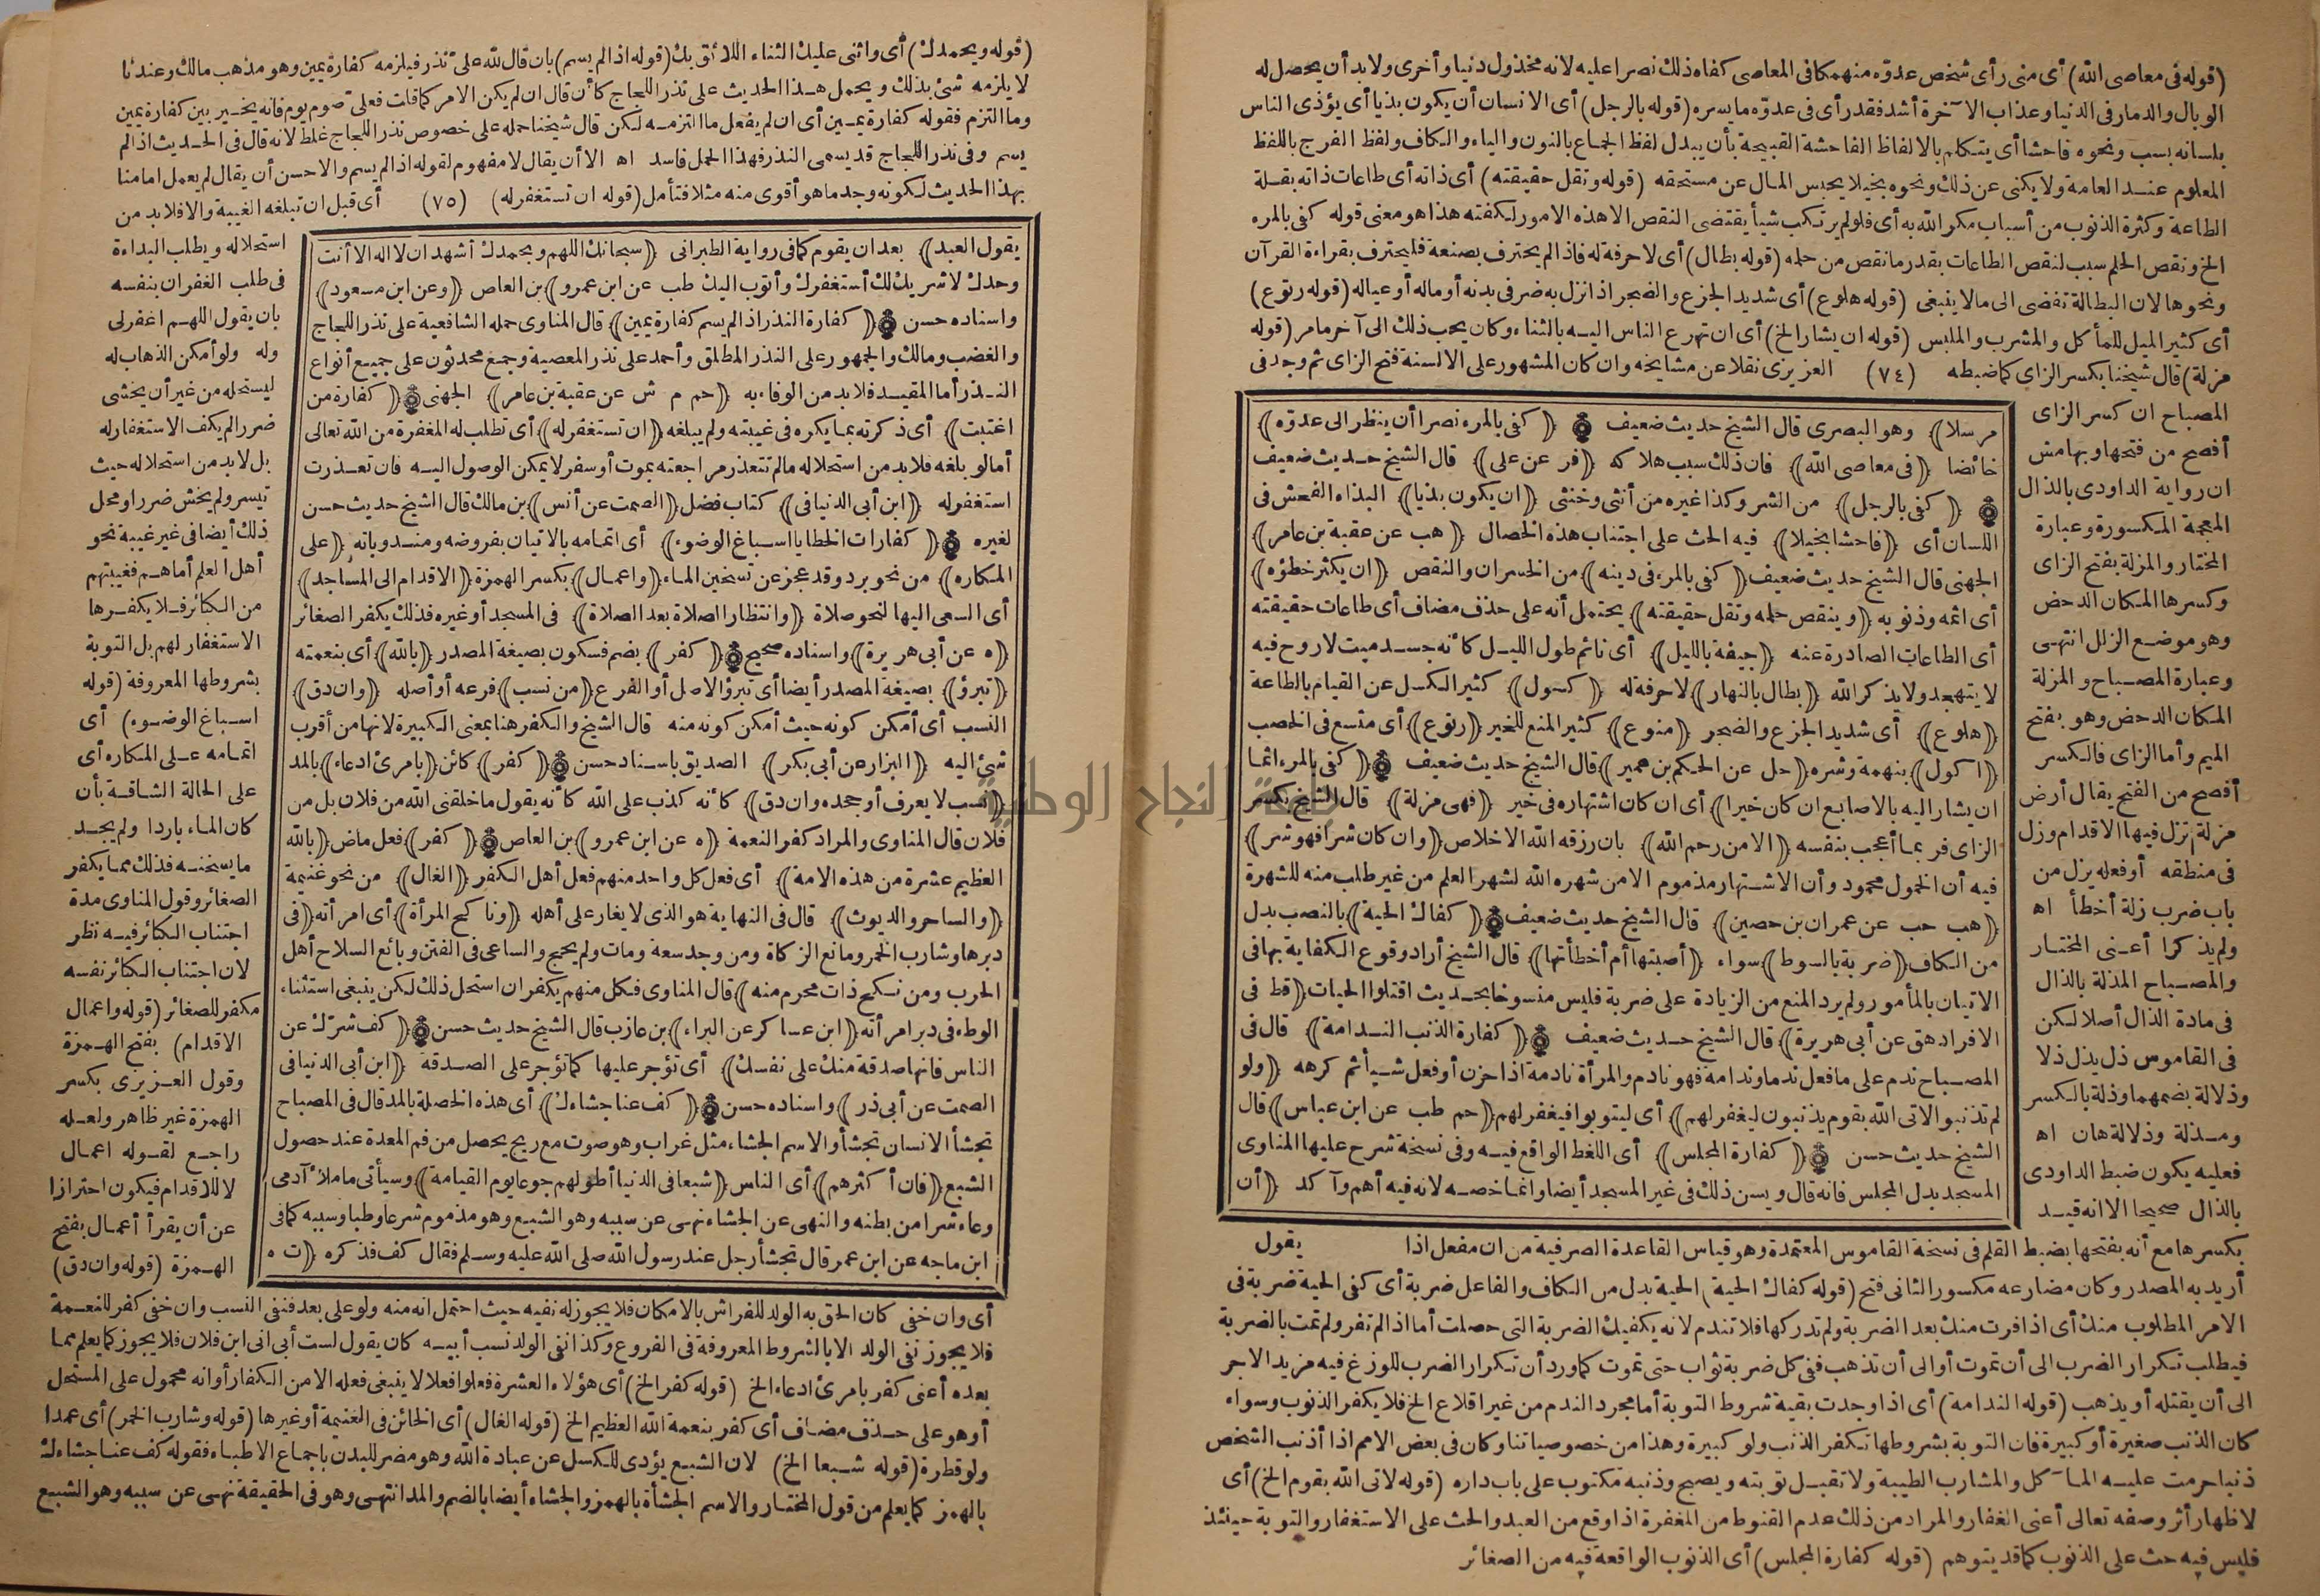 (قوله فى معاصى الله) أى متى رأى شخص عدوّه منهمكا فى المعاصى كفاه ذلك نصرا عليه لانه مخذول دنيا وأخرى ولابد أن يحصل له
الوبال والدمار فى الدنيا وعذاب الآخرة أشد فقد رأى فى عدوّه ما يسره (قوله بالرجل) أى الانسان أن يكون بذيا أى يؤذى الناس
بلسانه بسب ونحوه فاحشا أى يتكلم بالالفاظ الفاحشة القبيحة بأن يبدل لفظ الجماع بالنون والياء والكاف ولفظ الفرج باللفظ
المعلوم عند العامة ولا يكنى عن ذلك ونحوه بخيلا يحبس المال عن مستحقه (قوله وتقل حقيقته) أى ذاته أى طاعات ذاته بقلة
الطاعة وكثرة الذنوب من أسباب مكر الله به أى فلو لم يرتكب شيأ يقتضى النقص الا هذه الامور لكفته هذا هو معنى قوله كفى بالمرء
الخ ونقص الحلم سبب لنقص الطاعات بقدر ما نقص من حلمه (قوله بطال) أى لا حرفة له فاذا لم يحترف بصنعة فليحترف بقراءة القرآن
ونحوها لان البطالة تفضى الى مالا ينبغى (قوله هلوع) أى شديد الجزع والضجر اذا نزل به ضر فى بدنه أو ماله أو عياله (قوله رتوع)
أى كثير الميل للمأكل والمشرب والملبس (قوله ان يشار الخ) أى ان تهرع الناس اليه بالثناء وكان يحب ذلك الى آخر ما مر (قوله
مزلة) قال شيخنا بكسر الزاى كما ضبطه (٧٤) العزيزى نقلا عن مشايخه وان كان المشهور على الالسنة فتح الزاى ثم وجد فى
المصباح ان كسر الزاى
أفصح من فتحها وبهامش
ان رواية الداودى بالذال
المعجمة المكسورة وعبارة
المختار والمزلة بفتح الزاى
وكسرها المكان الدحض
وهو موضع الزلل انتهى
وعبارة المصباح والمزلة
المكان الدحض وهو بفتح
الميم وأما الزاى فالكسر
أفصح من الفتح يقال أرض
مزلة تزل فيها الاقدام وزل
فى منطقه أو فعله يزل من
باب ضرب زلة أخطأ اه
ولم يذكرا أعنى المختار
والمصباح المذلة بالذال
فى مادة الذال أصلا لكن
فى القاموس ذل يذل ذلا
وذلالة بضمهما وذلة بالكسر
ومذلة وذلالة هان اه
فعليه يكون ضبط الداودى
بالذال صحيحا الا انه قيد
مرسلا) وهو البصرى قال الشيخ حديث ضعيف (كفى بالمرء نصرا أن ينظر الى عدوّه)
خائضا (فى معاصى الله) فان ذلك سبب هلاكه (فر عن على) قال الشيخ حديث ضعيف
(كفى بالرجل) من الشر وكذا غيره من أنثى وخنثى (ان يكون بذيا) البذاء الفحش فى
اللسان أى (فاحشا بخيلا) فيه الحث على اجتناب هذه الخصال (هب عن عقبة بن عامر)
الجهنى قال الشيخ حديث ضعيف (كفى بالمرء فى دينه) من الخسران والنقص (ان يكثر خطؤه)
أى اثمه وذنوبه (وينقص حلمه وتقل حقيقته) يحتمل أنه على حذف مضاف أى طاعات حقيقته
أى الطاعات الصادرة عنه (جيفة بالليل) أى نائم طول الليل كأنه جسد ميت لا روح فيه
لا يتهجد ولا يذكر الله (بطال بالنهار) لا حرفة له (كسول) كثير الكسل عن القيام بالطاعة
(هلوع) أى شديد الجزع والضجر (منوع) كثير المنع للخير (رتوع) أى متسع فى الخصب
(أكول) بنهمة وشره (حل عن الحكم بن عمير) قال الشيخ حديث ضعيف (كفى بالمرء اثما
ان يشار اليه بالاصابع ان كان خيرا) أى ان كان اشتهاره فى خير (فهى مزلة) قال الشيخ بكسر
الزاى فربما أعجب بنفسه (الا من رحم الله) بان رزقه الله الاخلاص (وان كان شرا فهو شر)
فيه أن الخمول محمود وأن الاشتهار مذموم الا من شهره الله لنشر العلم من غير طلب منه للشهرة
(هب حب عن عمران بن حصين) قال الشيخ حديث ضعيف (كفاك الحية) بالنصب بدل
من الكاف (ضربة بالسوط) سواء (أصبتها أم أخطأتها) قال الشيخ أراد وقوع الكفاية بها فى
الاتيان بالمأمور ولم يرد المنع من الزيادة على ضربة فليس منسوخا بحديث اقتلوا الحيات (قط فى
الافراد هق عن أبى هريرة) قال الشيخ حديث ضعيف (كفارة الذنب الندامة) قال فى
المصباح ندم على ما فعل ندما وندامة فهو نادم والمرأة نادمة اذا حزن أو فعل شيأ ثم كرهه (ولو
لم تذنبوا لاتى الله بقوم يذنبون ليغفر لهم) أى ليتوبوا فيغفر لهم (حم طب عن ابن عباس) قال
الشيخ حديث حسن (كفارة المجلس) أى اللغط الواقع فيه وفى نسخة شرح عليها المناوى
المسجد بدل المجلس فانه قال ويسن ذلك فى غير المسجد أيضا وانما خصه لانه فيه أهم وآكد (أن
يكسرها مع أنه بفتحها بضبط القلم فى نسخة القاموس المعتمدة وهو قياس القاعدة الصرفية من ان مفعل اذا يقول
أريد به المصدر وكان مضارعه مكسور الثانى فتح (قوله كفاك الحية) الحية بدل من الكاف والفاعل ضربة أى كفى الحية ضربة فى
الامر المطلوب منك أى اذا فرت منك بعد الضربة ولم تدركها فلا تندم لانه يكفيك الضربة التى حصلت أما اذا لم تفر ولم تمت بالضربة
فيطلب تكرار الضرب الى أن تموت أو الى أن تذهب ففى كل ضربة ثواب حتى تموت كما ورد أن تكرار الضرب للوزغ فيه مزيد الاجر
الى أن يقتله أو يذهب (قوله الندامة) أى اذا وجدت بقية شروط التوبة أما مجرد الندم من غير اقلاع الخ فلا يكفر الذنوب وسواء
كان الذنب صغيرة أو كبيرة فان التوبة بشروطها تكفر الذنب ولو كبيرة وهذا من خصوصياتنا وكان فى بعض الامم اذا أذنب الشخص
ذنبا حرمت عليه المآكل والمشارب الطيبة ولا تقبل توبته ويصبح وذنبه مكتوب على باب داره (قوله لاتى الله بقوم الخ) أى
لاظهار أثر وصفه تعالى أعنى الغفار والمراد من ذلك عدم القنوط من المغفرة اذا وقع من العبد والحث على الاستغفار والتوبة حينئذ
فليس فيه حث على الذنوب كما قد يتوهم (قوله كفارة المجلس) أى الذنوب الواقعة فيه من الصغائر
(قوله وبحمدك) أى واثنى عليك الثناء اللائق بك (قوله اذا لم يسم) بان قال لله على نذر فيلزمه كفارة يمين وهو مذهب مالك وعندنا
لا يلزمه شئ بذلك ويحمل هذا الحديث على نذر اللجاج كأن قال ان لم يكن الامر كما قلت فعلى صوم يوم فانه يخير بين كفارة يمين
وما التزم فقوله كفارة يمين أى ان لم يفعل ما التزمه لكن قال شيخنا حمله على خصوص نذر اللجاج غلط لانه قال فى الحديث اذا لم
يسم وفى نذر اللجاج قد يسمى النذر فهذا الحمل فاسد اه الا أن يقال لا مفهوم لقوله اذا لم يسم والاحسن أن يقال لم يعمل امامنا
بهذا الحديث لكونه وجد ما هو أقوى منه مثلا فتأمل (قوله ان تستغفر له) (٧٥) أى قبل ان تبلغه الغيبة والا فلابد من
يقول العبد) بعد ان يقوم كما فى رواية الطبرانى (سبحانك اللهم وبحمدك أشهد ان لا اله الا أنت
وحدك لا شريك لك أستغفرك وأتوب اليك طب عن ابن عمرو) بن العاص (وعن ابن مسعود)
واسناده حسن (كفارة النذر اذا لم يسم كفارة يمين) قال المناوى حمله الشافعية على نذر اللجاج
والغضب ومالك والجمهور على النذر المطلق وأحمد على نذر المعصية وجمع محدثون على جميع أنواع
النذر أما المقيد فلابد من الوفاء به (حم م ش عن عقبة بن عامر) الجهنى (كفارة من
اغتبت) أى ذكرته بما يكره فى غيبته ولم يبلغه (ان تستغفر له) أى تطلب له المغفرة من الله تعالى
أما لو بلغه فلابد من استحلاله ما لم تتعذر مراجعته بموت أو سفر لا يمكن الوصول اليه فان تعذرت
استغفر له (ابن أبى الدنيا فى) كتاب فضل (الصمت عن أنس) بن مالك قال الشيخ حديث حسن
لغيره (كفارات الخطايا اسباغ الوضوء) أى اتمامه بالاتيان بفروضه ومندوباته (على
المكاره) من نحو برد وقد عجز عن تسخين الماء (واعمال) بكسر الهمزة (الاقدام الى المساجد)
أى السعى اليها لنحو صلاة (وانتظار الصلاة بعد الصلاة) فى المسجد أو غيره فذلك يكفر الصغائر
(ه عن أبى هريرة) واسناده صحيح (كفر) بضم فسكون بصيغة المصدر (بالله) أى بنعمته
(تبرؤ) بصيغة المصدر أيضا أى تبرؤ الاصل أو الفرع (من نسب) فرعه أو أصله (وان دق)
النسب أى أمكن كونه حيث أمكن كونه منه قال الشيخ والكفر هنا بمعنى الكبيرة لانها من أقرب
شئ اليه (البزار عن أبى بكر) الصديق باسناد حسن (كفر) كائن (بامرئ ادعاء) بالمد
(نسب لا يعرف أو جحده وان دق) كأنه كذب على الله كأنه يقول ما خلقنى الله من فلان بل من
فلان قال المناوى والمراد كفر النعمة (ه عن ابن عمرو) بن العاص (كفر) فعل ماض (بالله
العظيم عشرة من هذه الامة) أى فعل كل واحد منهم فعل أهل الكفر (الغال) من نحو غنيمة
(والساحر والديوث) قال فى النهاية هو الذى لا يغار على أهله (وناكح المرأة) أى امرأته (فى
دبرها وشارب الخمر ومانع الزكاة ومن وجد سعة ومات ولم يحج والساعى فى الفتن وبائع السلاح أهل
الحرب ومن نكح ذات محرم منه) قال المناوى فكل منهم يكفر ان استحل ذلك لكن ينبغى استثناء
الوطء فى دبر امرأته (ابن عساكر عن البراء) بن عازب قال الشيخ حديث حسن (كف شرّك عن
الناس فانها صدقة منك على نفسك) أى تؤجر عليها كما تؤجر على الصدقة (ابن أبى الدنيا فى
الصمت عن أبى ذر) واسناده حسن (كف عنا جشاءك) أى هذه الخصلة بالمد قال فى المصباح
تجشأ الانسان تجشأ والاسم الجشاء مثل غراب وهو صوت مع ريح يحصل من فم المعدة عند حصول
الشبع (فان أكثرهم) أى الناس (شبعا فى الدنيا أطولهم جوعا يوم القيامة) وسيأتى ما ملأ آدمى
وعاء شرا من بطنه والنهى عن الجشاء نهى عن سببه وهو الشبع وهو مذموم شرعا وطبا وسببه كما فى
ابن ماجه عن ابن عمر قال تجشأ رجل عند رسول الله صلى الله عليه وسلم فقال كف فذكره (ت ه
استحلاله ويطلب البداءة
فى طلب الغفران بنفسه
بان يقول اللهم اغفر لى
وله ولو أمكن الذهاب له
ليستحله من غير أن يخشى
ضررا لم يكف الاستغفار له
بل لابد من استحلاله حيث
تيسر ولم يخش ضررا ومحل
ذلك أيضا فى غير غيبة نحو
أهل العلم أما هم فغيبتهم
من الكبائر فلا يكفرها
الاستغفار لهم بل التوبة
بشروطها المعروفة (قوله
اسباغ الوضوء) أى
اتمامه على المكاره أى
على الحالة الشاقة بأن
كان الماء باردا ولم يجد
ما يسخنه فذلك مما يكفر
الصغائر وقول المناوى مدة
اجتناب الكبائر فيه نظر
لان اجتناب الكبائر نفسه
مكفر للصغائر (قوله واعمال
الاقدام) بفتح الهمزة
وقول العزيزى بكسر
الهمزة غير ظاهر ولعله
راجع لقوله اعمال
لا للاقدام فيكون احترازا
عن أن يقرأ أعمال بفتح
الهمزة (قوله وان دق)
أى وان خفى كان الحق به الولد للفراش بالامكان فلا يجوز له نفيه حيث احتمل انه منه ولو على بعد فنفى النسب وان خفى كفر للنعمة
فلا يجوز نفى الولد الا بالشروط المعروفة فى الفروع وكذا نفى الولد نسب أبيه كان يقول لست أبى انى ابن فلان فلا يجوز كما يعلم مما
بعده أعنى كفر بامرئ ادعاء الخ (قوله كفر الخ) أى هؤلاء العشرة فعلوا فعلا لا ينبغى فعله الا من الكفار أو انه محمول على المستحل
أو هو على حذف مضاف أى كفر بنعمة الله العظيم الخ (قوله الغال) أى الخائن فى الغنيمة أو غيرها (قوله وشارب الخمر) أى عمدا
ولو قطرة (قوله شبعا الخ) لان الشبع يؤدى للكسل عن عبادة الله وهو مضر للبدن باجماع الاطباء فقوله كف عنا جشاءك
بالهمز كما يعلم من قول المختار والاسم الجشأة بالهمز والجشاء أيضا بالضم والمد انتهى وهو فى الحقيقة نهى عن سببه وهو الشبع
جامعة النجاح الوطنية